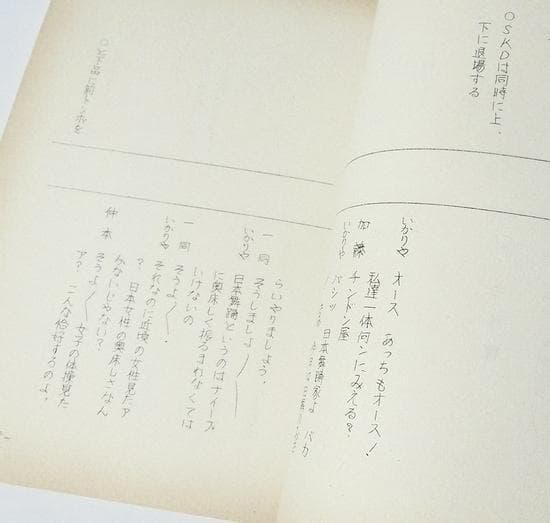 ○SKDは同時に上、
下に退場する
いかりや オース あっちもオース！
私達一体何ンにみえる？
加藤 チンドン屋
いかりや バシッ 日本舞踊家よ バカ
らいやりましょう。
一同 そうしましょ
いかりや 日本舞踊というのはナイーブ
に奥床しく振るまわなくては
いけないの
一同 そうよ
いかりや それなのに近頃の女性見たァ
？ 日本女性の奥床しさなん
かないじゃない？
仲本 そうよ 女子の体操見た
ァ？ こんな恰好するのよ。